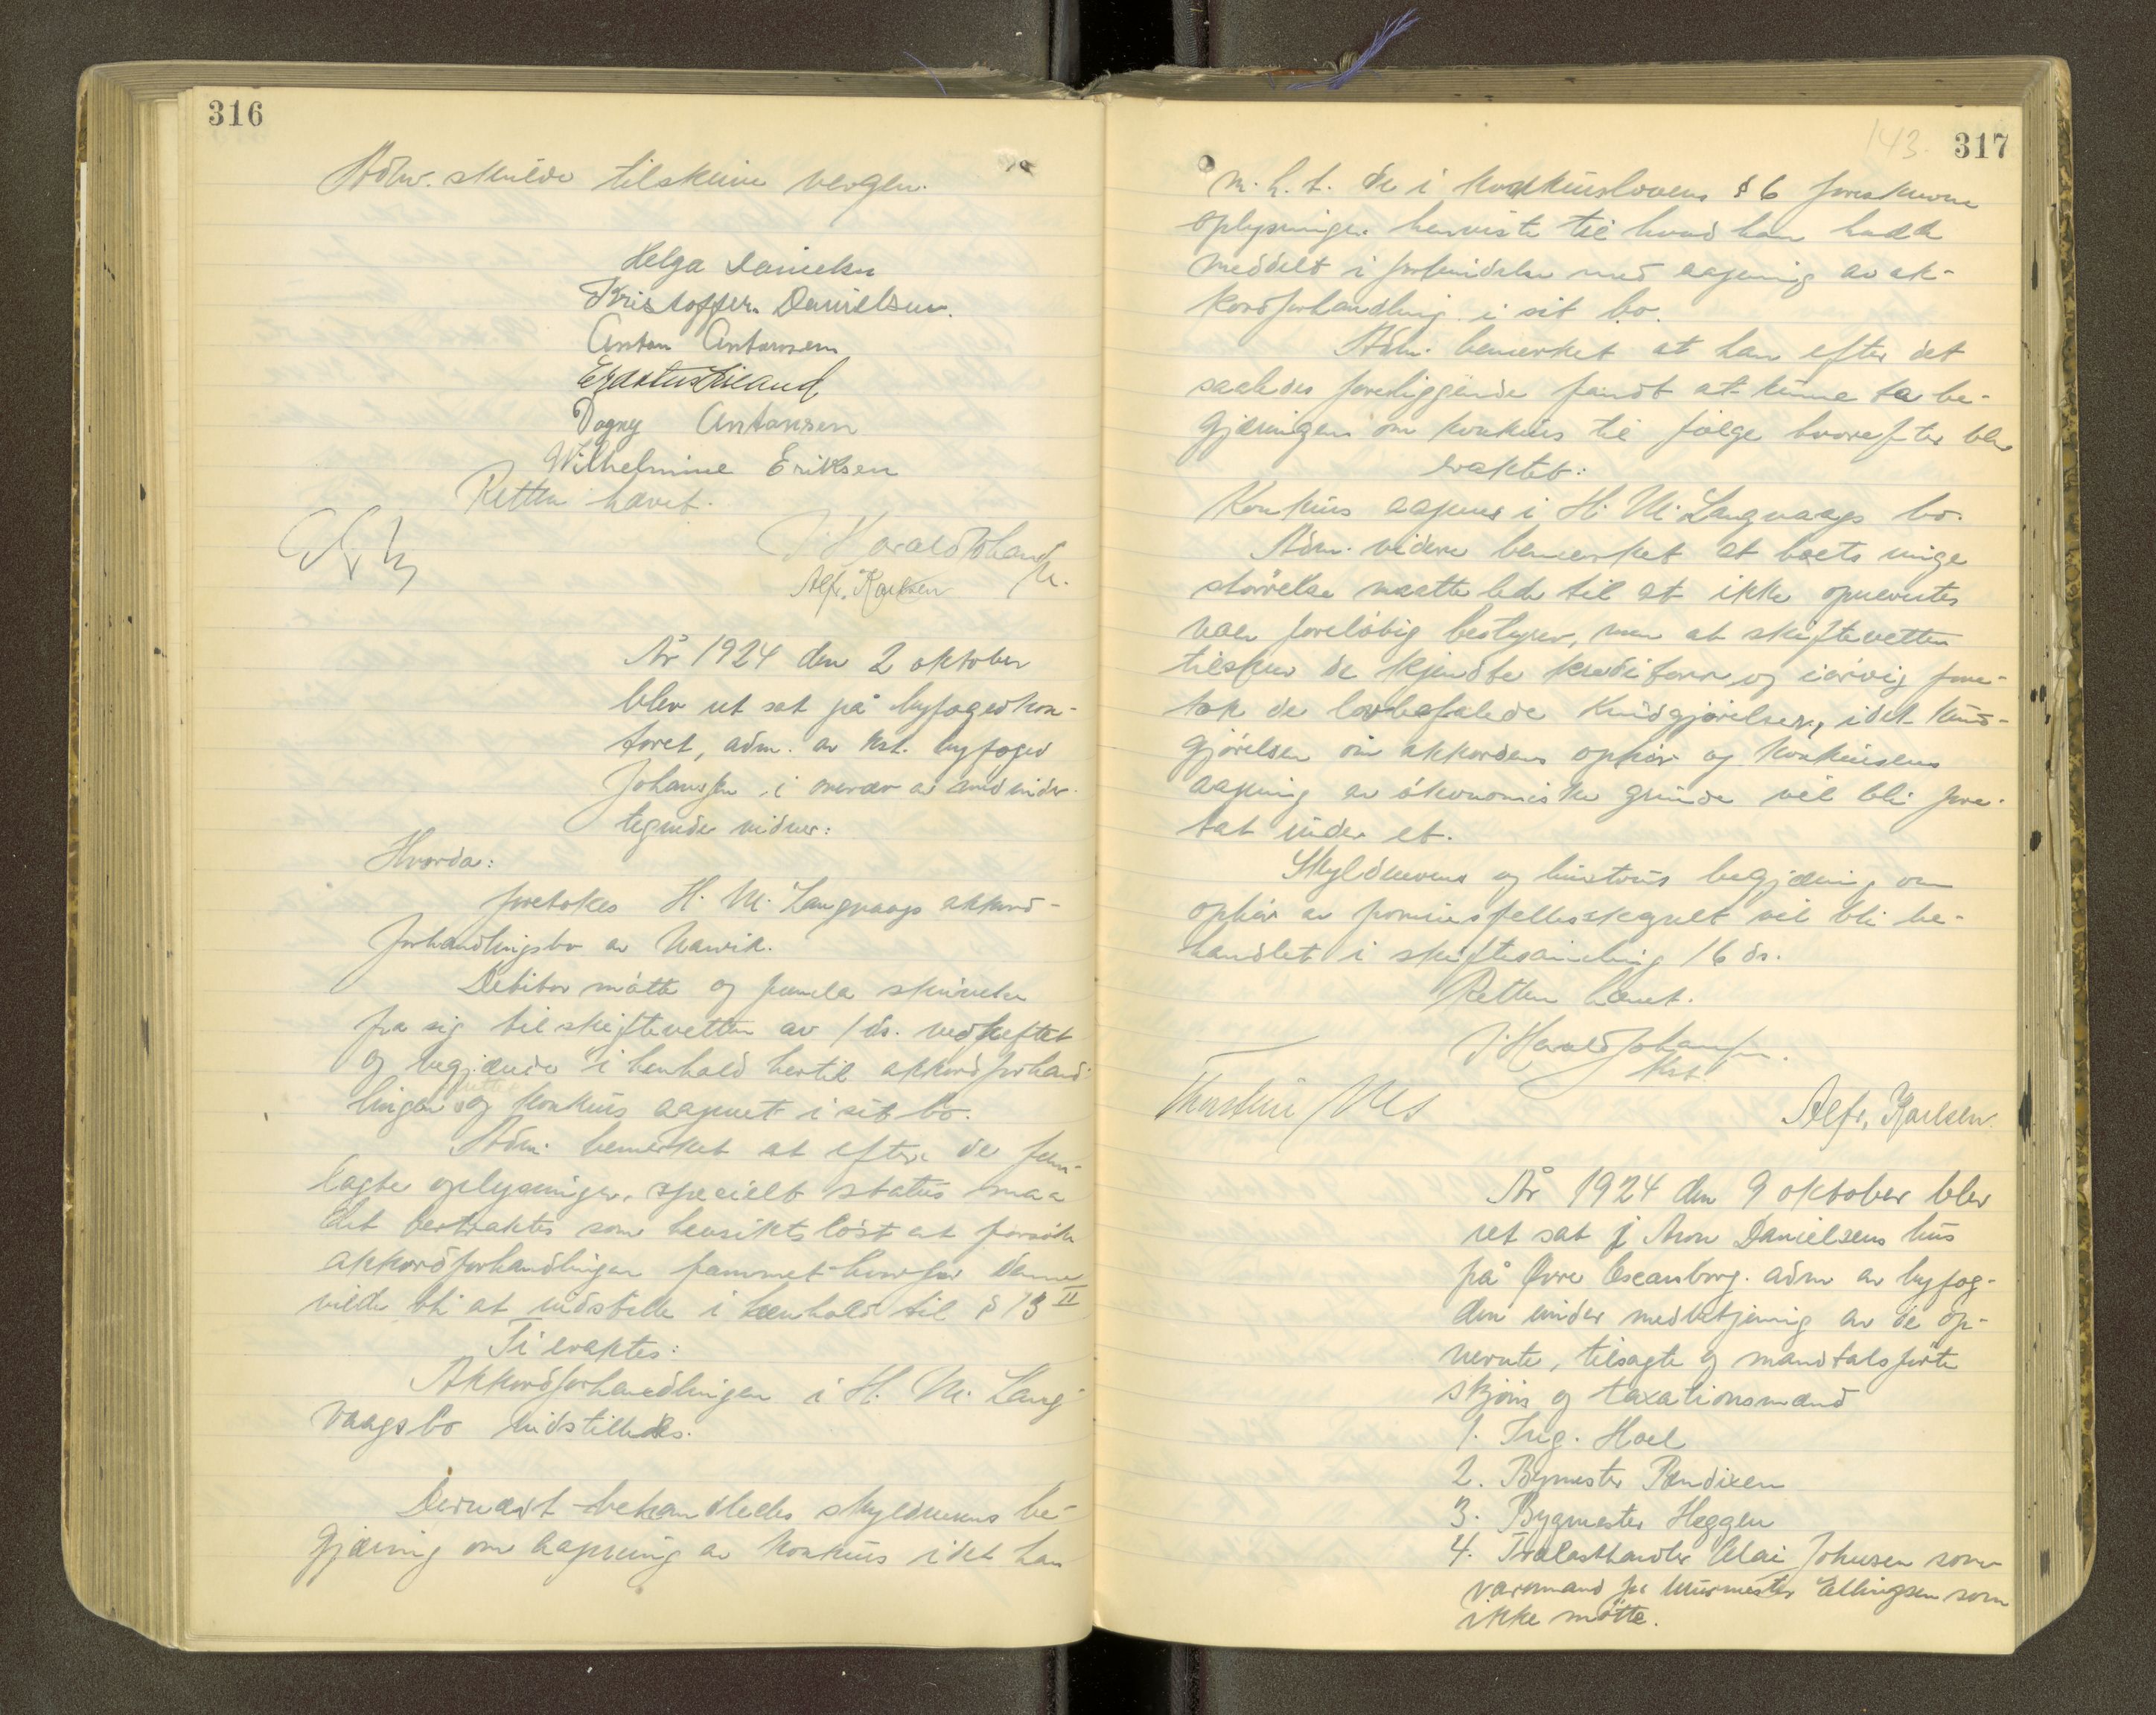 316
Adm. skulde tilskrive vergen.
Helga Danielsen
Kristoffer Danielsen.
Anton Antonsen
Erastus
Dagny Antonsen
Wilhelmine Eriksen
Retten hævet.
J. Harald Johansen
Alfr. Karlsen
År 1924 den 2 oktober
blev ret sat på byfogedkon-
toret, adm. av kst. byfoged
Johansen i overvær av medunder-
tegnede vidner:
Hvorda:
foretokes H. M. Langvaags akkord-
forhandlingsbo av Narvik.
Debitor møtte og fremla skrivelse
fra sig til skifteretten av 1 ds. vedheftet
og begjærede i henhold hertil akkordforhand-
lingen og konkurs aapnet i sit bo.
Adm. bemerket at efter de frem-
lagte oplysninger, specielt status maa
det betraktes som hensiktsløst at forsøke
akkordforhandlingen fremmet hvorfor denne
vilde bli at indstille i henhold til § 13 II
Ti eraktes:
Akkordforhandlingen i H. M. Lang-
vaags bo indstilledes.
Dernæst behandledes skyldnerens be-
gjæring om aapning av konkurs idet han
143. 317
m. h. t. de i konkurslovens § 6 foreskrevne
oplysninger henviste til hvad han hadde
meddelt i forbindelse med aapning av ak-
kordforhandling i sit bo.
Adm. bemerket at han efter det
saaledes foreliggende fandt at kunne ta be-
gjæringen om konkurs til følge hvorefter blev
eraktet:
Konkurs aapnes i H. M. Langvaags bo.
Adm. videre bemerket at boets ringe
størrelse maatte lede til at ikke opnevntes
noen foreløbig bestyrer, men at skifteretten
tilskrev de kjendte kreditorer og iøvrig fore-
tok de lovbefalede kundgjørelser, idet kund-
gjørelsen om akkordens ophør og konkursens
aapning av økonomiske grunde vil bli fore-
tat under et.
Skyldnerens og hustrus begjæring om
ophør av formuesfellesskapet vil bli be-
handlet i skiftesamling 16 ds.
Retten hævet.
J. Harald Johansen.
kst.
Alfr. Karlsen.
År 1924 den 9 oktober blev
ret sat i Aron Danielsens hus
på Øvre Oscarsborg. adm av byfog-
den under medbetjening av de op-
nevnte, tilsagte og mandtalsførte
skjøns og taxationsmænd
1. Ing. Hoel
2. Bymester Bendixen
3. Bygmester Heggen
4. Trælasthandler Johnsen som
varamand for Murmester Ellingsen som
ikke møtte.